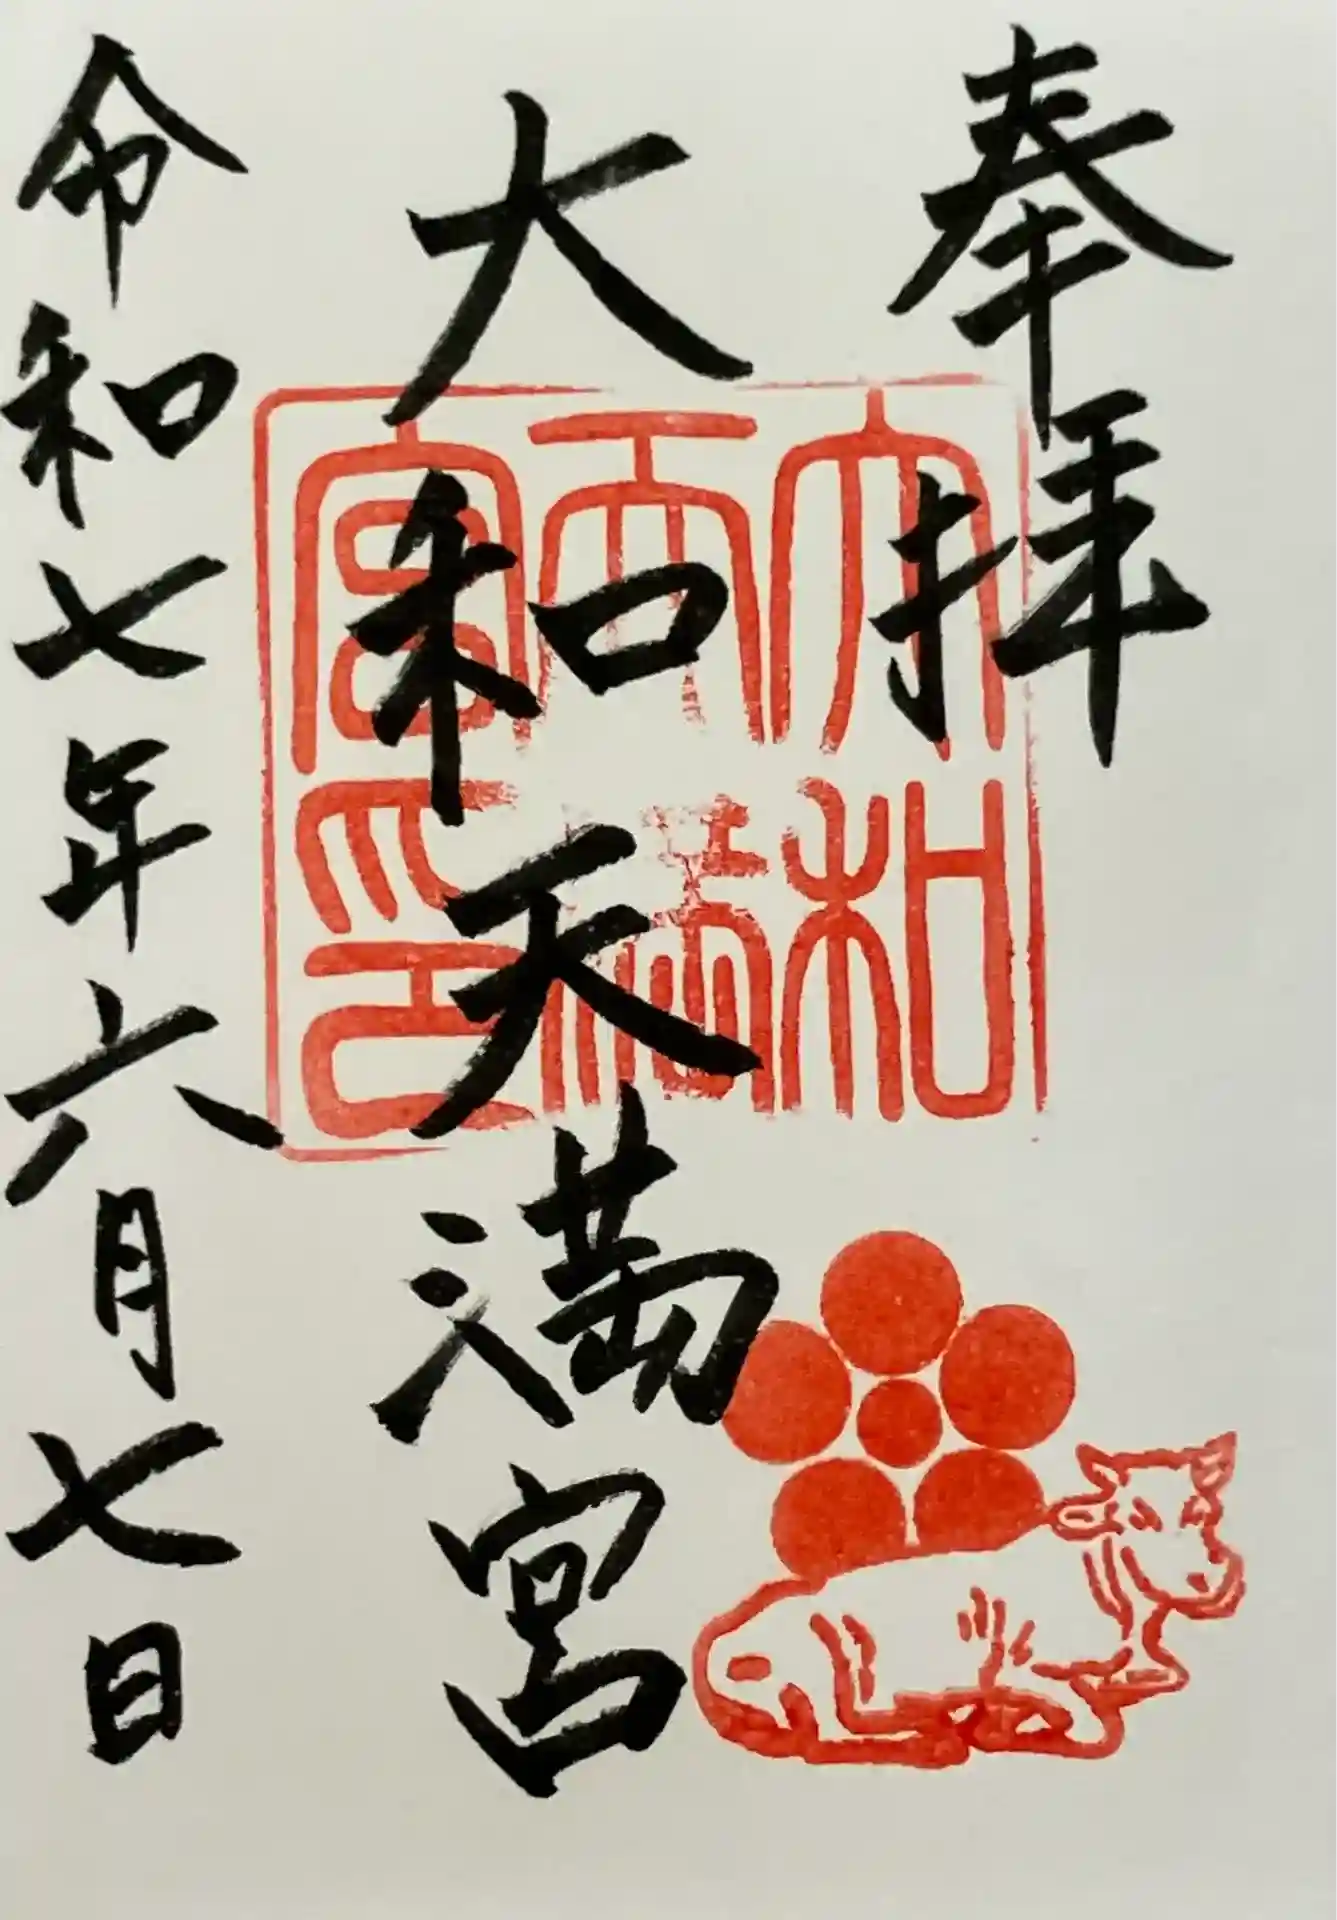 奉拝
大和天満宮
令和七年六月七日
大和天満宮印